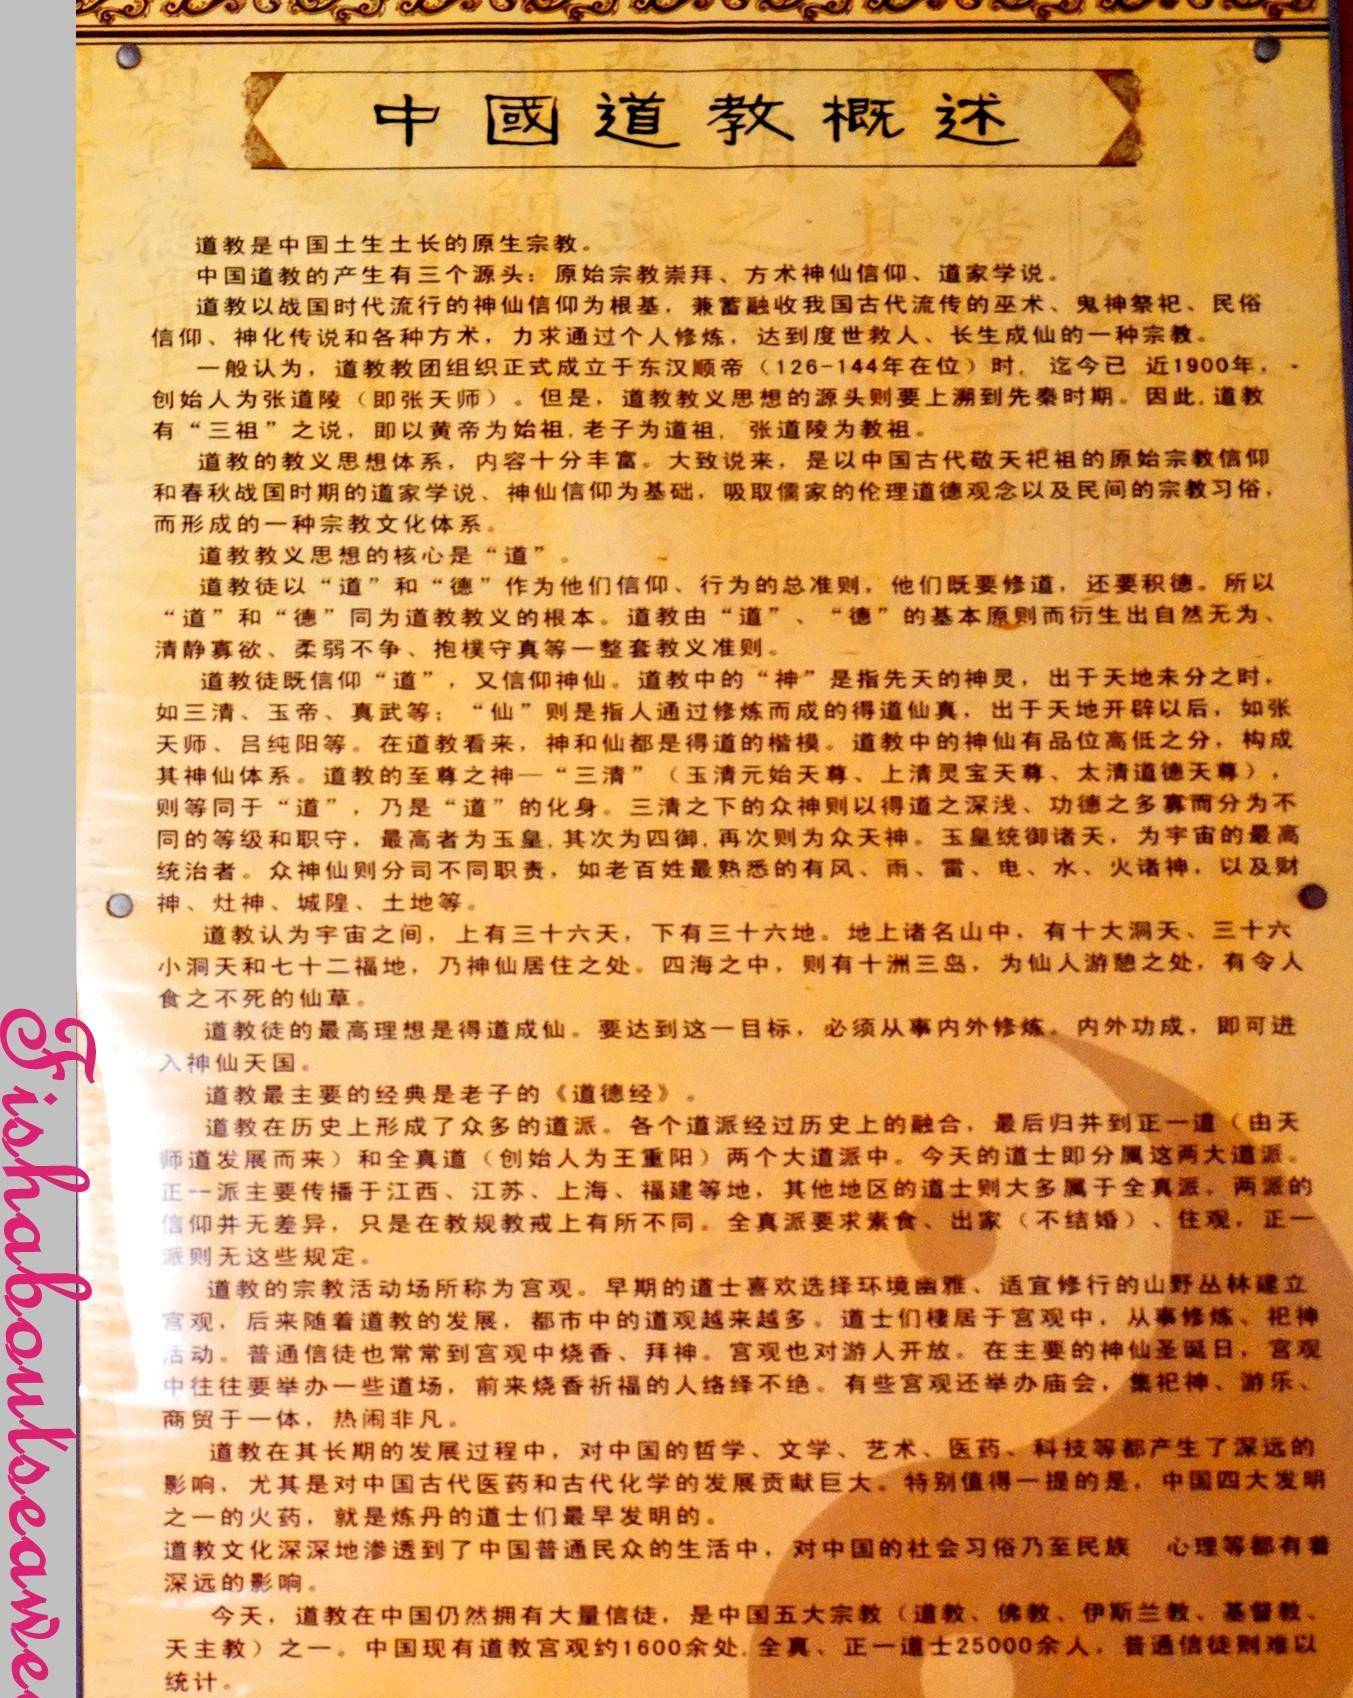 中國道教概述
道教是中国土生土长的原生宗教。
中国道教的产生有三个源头：原始宗教崇拜、方术神仙信仰、道家学说。
道教以战国时代流行的神仙信仰为根基，兼蓄融收我国古代流传的巫术、鬼神祭祀、民俗
信仰、神化传说和各种方术，力求通过个人修炼，达到度世救人、长生成仙的一种宗教。
一般认为，道教教团组织正式成立于东汉顺帝（126-144年在位）时，迄今已 近1900年，
创始人为张道陵（即张天师）。但是，道教教义思想的源头则要上溯到先秦时期。因此，道教
有“三祖”之说，即以黄帝为始祖，老子为道祖，张道陵为教祖。
道教的教义思想体系，内容十分丰富。大致说来，是以中国古代敬天祀祖的原始宗教信仰
和春秋战国时期的道家学说、神仙信仰为基础，吸取儒家的伦理道德观念以及民间的宗教习俗，
而形成的一种宗教文化体系。
道教教义思想的核心是“道”。
道教徒以“道”和“德”作为他们信仰、行为的总准则，他们既要修道，还要积德。所以
“道”和“德”同为道教教义的根本。道教由“道”、“德”的基本原则而衍生出自然无为、
清静寡欲、柔弱不争、抱樸守真等一整套教义准则。
道教徒既信仰“道”，又信仰神仙。道教中的“神”是指先天的神灵，出于天地未分之时，
如三清、玉帝、真武等；“仙”则是指人通过修炼而成的得道仙真，出于天地开辟以后，如张
天师、吕纯阳等。在道教看来，神和仙都是得道的楷模。道教中的神仙有品位高低之分，构成
其神仙体系。道教的至尊之神—“三清”（玉清元始天尊、上清灵宝天尊、太清道德天尊），
则等同于“道”，乃是“道”的化身。三清之下的众神则以得道之深浅、功德之多寡而分为不
同的等级和职守，最高者为玉皇，其次为四御，再次则为众天神。玉皇统御诸天，为宇宙的最高
统治者。众神仙则分司不同职责，如老百姓最熟悉的有风、雨、雷、电、水、火诸神，以及财
神、灶神、城隍、土地等。
道教认为宇宙之间，上有三十六天，下有三十六地。地上诸名山中，有十大洞天、三十六
小洞天和七十二福地，乃神仙居住之处。四海之中，则有十洲三岛，为仙人游憩之处，有令人
食之不死的仙草。
道教徒的最高理想是得道成仙。要达到这一目标，必须从事内外修炼。内外功成，即可进
入神仙天国。
道教最主要的经典是老子的《道德经》。
道教在历史上形成了众多的道派。各个道派经过历史上的融合，最后归并到正一道（由天
师道发展而来）和全真道（创始人为王重阳）两个大道派中。今天的道士即分属这两大道派。
正一派主要传播于江西、江苏、上海、福建等地，其他地区的道士则大多属于全真派。两派的
信仰并无差异，只是在教规教戒上有所不同。全真派要求素食、出家（不结婚）、住观，正一
派则无这些规定。
道教的宗教活动场所称为宫观。早期的道士喜欢选择环境幽雅、适宜修行的山野丛林建立
宫观，后来随着道教的发展，都市中的道观越来越多。道士们棲居于宫观中，从事修炼、祀神
活动。普通信徒也常常到宫观中烧香、拜神。宫观也对游人开放。在主要的神仙圣诞日，宫观
中往往要举办一些道场，前来烧香祈福的人络绎不绝。有些宫观还举办庙会，集祀神、游乐、
商贸于一体，热闹非凡。
道教在其长期的发展过程中，对中国的哲学、文学、艺术、医药、科技等都产生了深远的
影响，尤其是对中国古代医药和古代化学的发展贡献巨大。特别值得一提的是，中国四大发明
之一的火药，就是炼丹的道士们最早发明的。
道教文化深深地渗透到了中国普通民众的生活中，对中国的社会习俗乃至民族 心理等都有着
深远的影响。
今天，道教在中国仍然拥有大量信徒，是中国五大宗教（道教、佛教、伊斯兰教、基督教、
天主教）之一。中国现有道教宫观约1600余处，全真、正一道士25000余人，普通信徒则难以
统计。